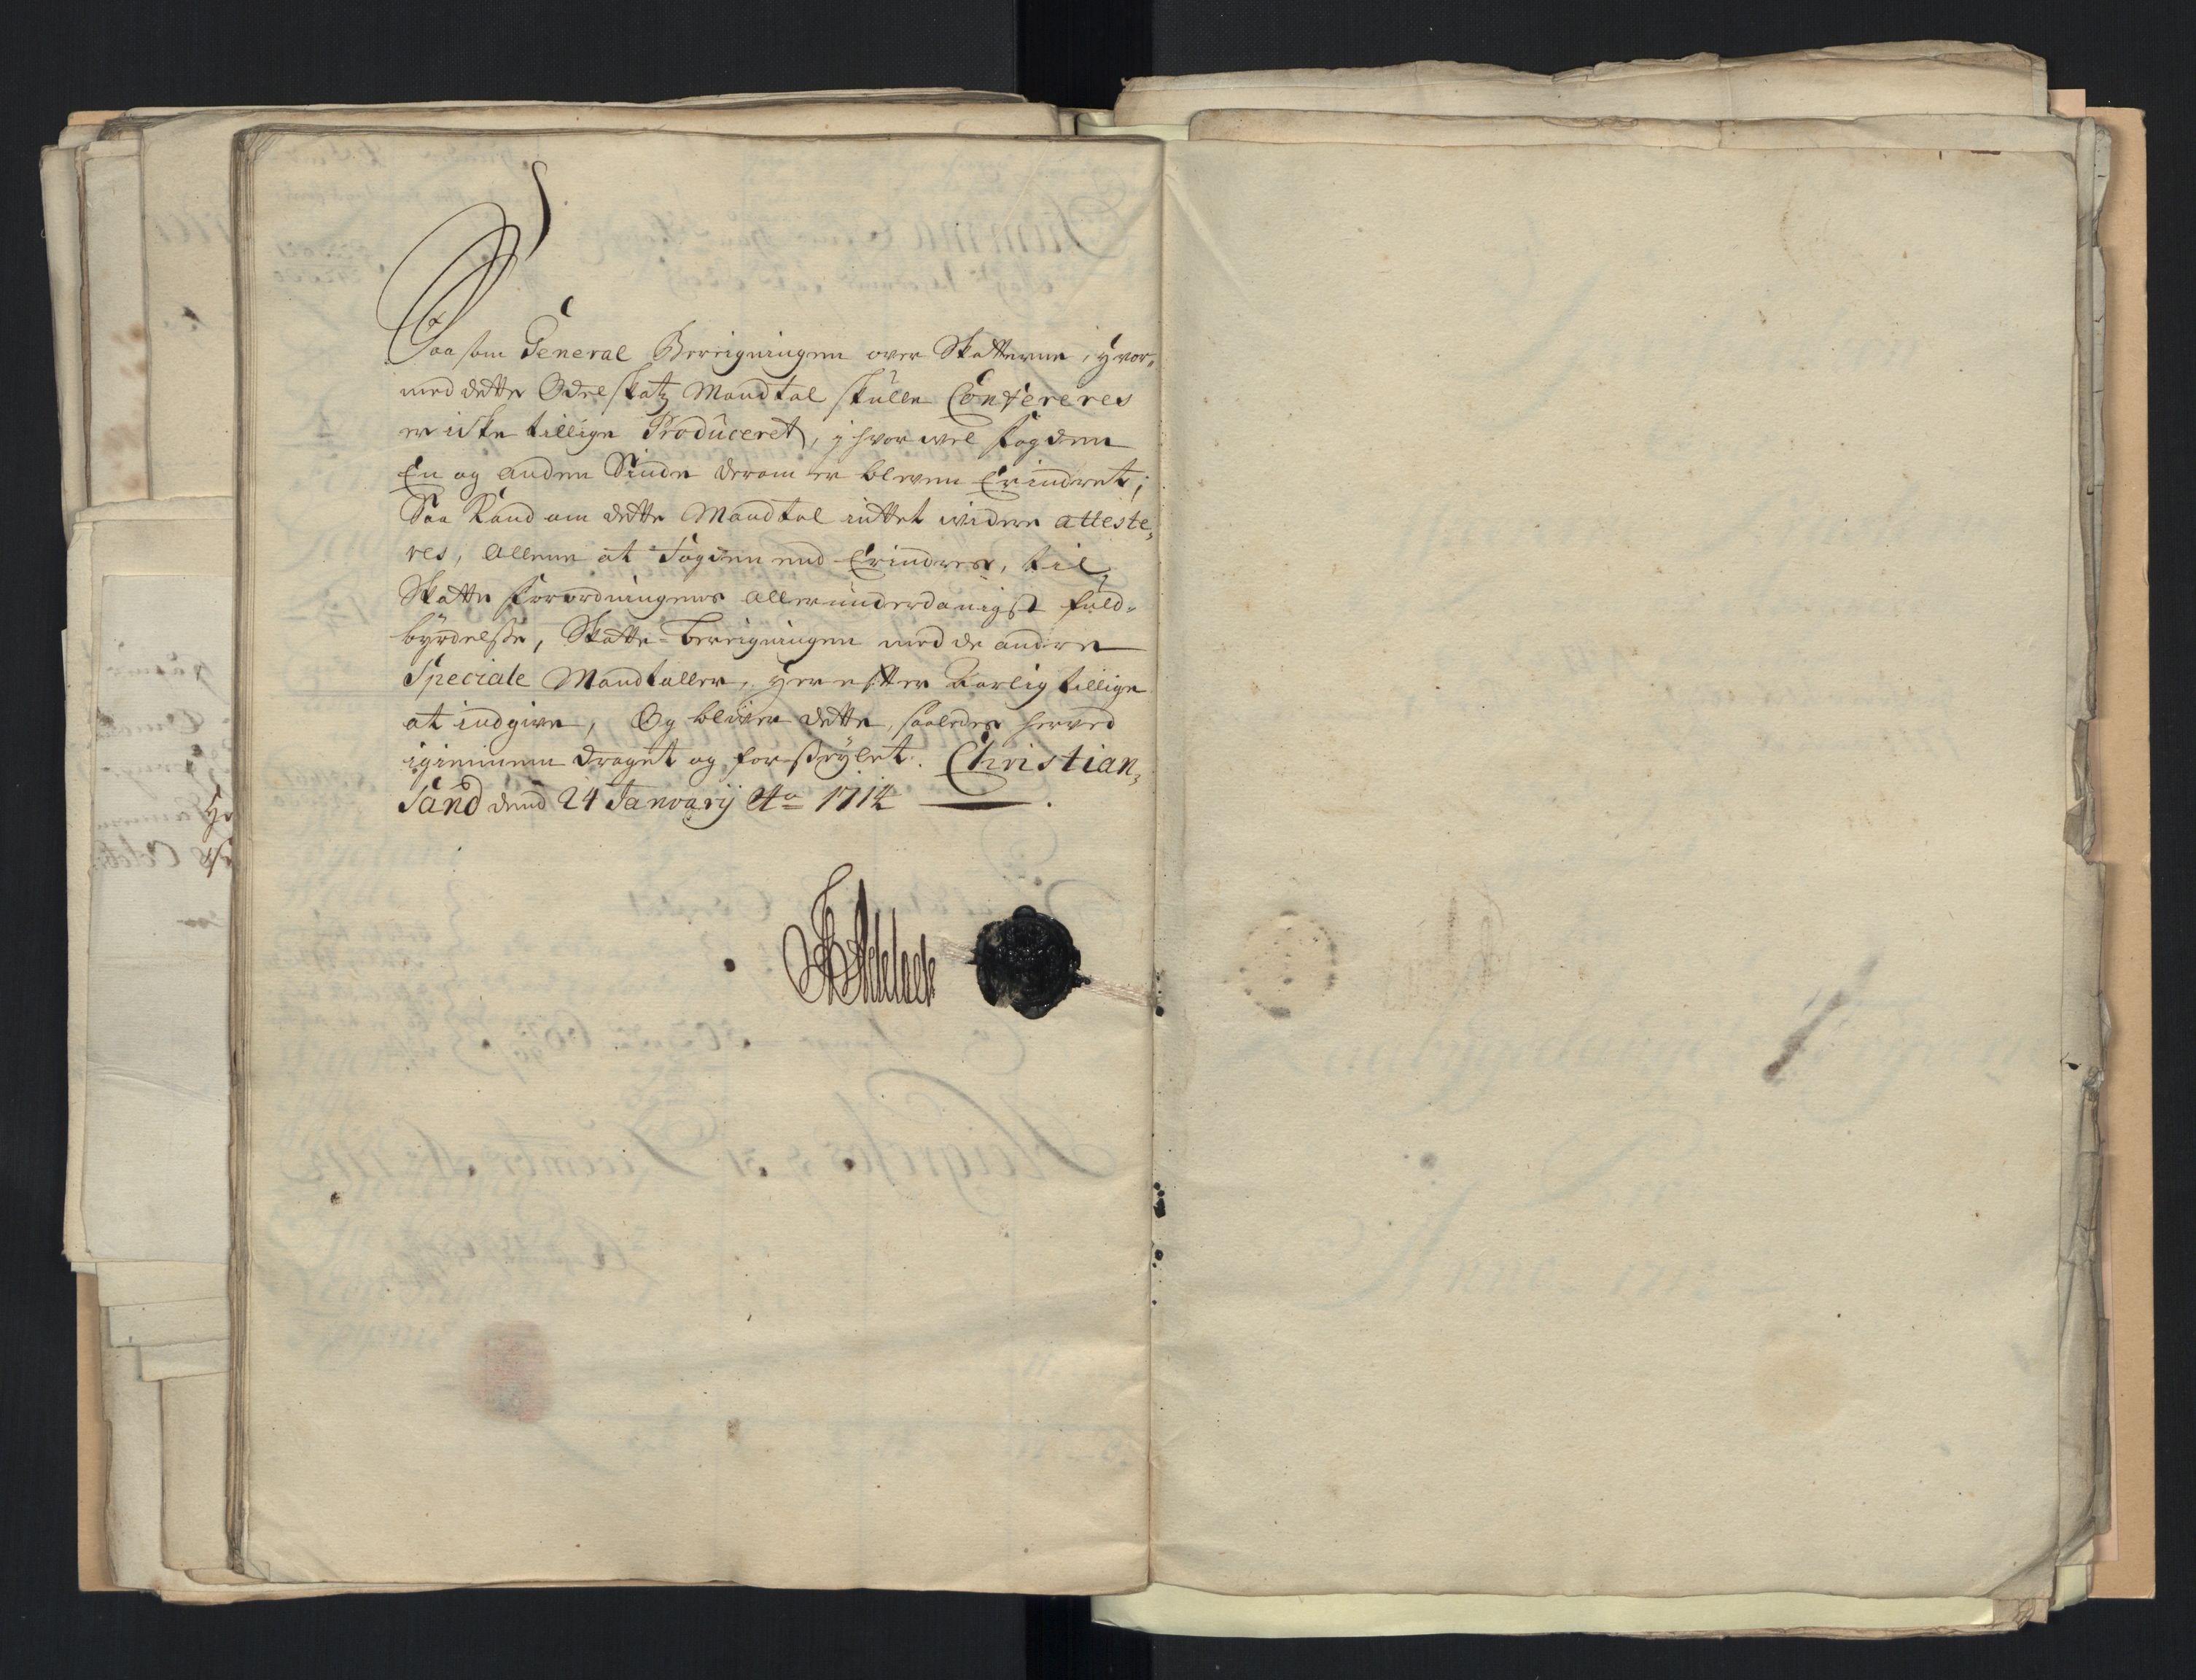 Saasom General Bereigningen over Skatterne, hvor„
med dette Odel skatz Mandtal skulle Confereres
er icke tillige Produceret, j hvor vel Fogden
En og anden Sinde derom er bleven Erindret;
Saa Kand om dette Mandtal intet videre atteste„
res, Allene at Fogden end Erindres, til
Skatte Forordningens allerunderdanigst fuld„
byrdelsse, Skatte-Bereigningen med de andre
Speciale Mandtaller, herefter Aarlig tillige
at indgive, Og bliver dette, saaledes herved
igiennem draget og forseiglet. Christian„
Sand dend 24 Januarij Ao 1714